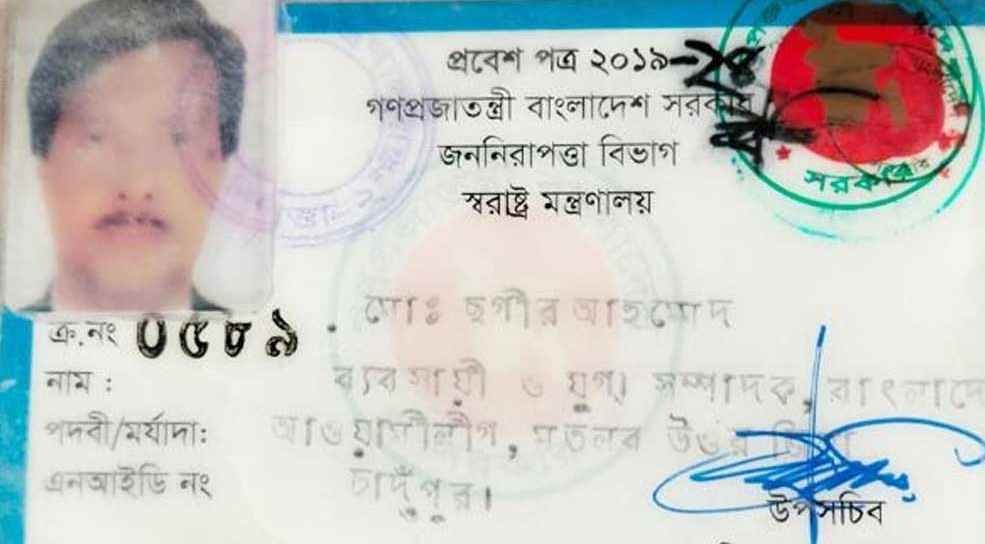 প্রবেশ পত্র ২০১৯-২০
গণপ্রজাতন্ত্রী বাংলাদেশ সরকার
জননিরাপত্তা বিভাগ
স্বরাষ্ট্র মন্ত্রণালয়
সরকার
ক্র.নং ০৫৮৯
মোঃ ছগীর আহমেদ
নাম :
ব্যবসায়ী ও যুগ্ম সম্পাদক,
পদবী/মর্যাদা:
আওয়ামীলীগ, মতলব উত্তর
এনআইডি নং
চাদঁপুর।
উপসচিব